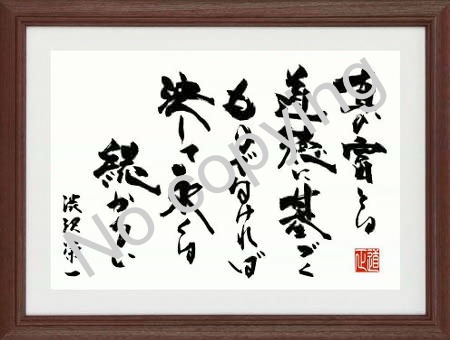 真の富とは
道徳に基づく
ものでなければ
決して永くは
続かない
渋沢栄一
No copying